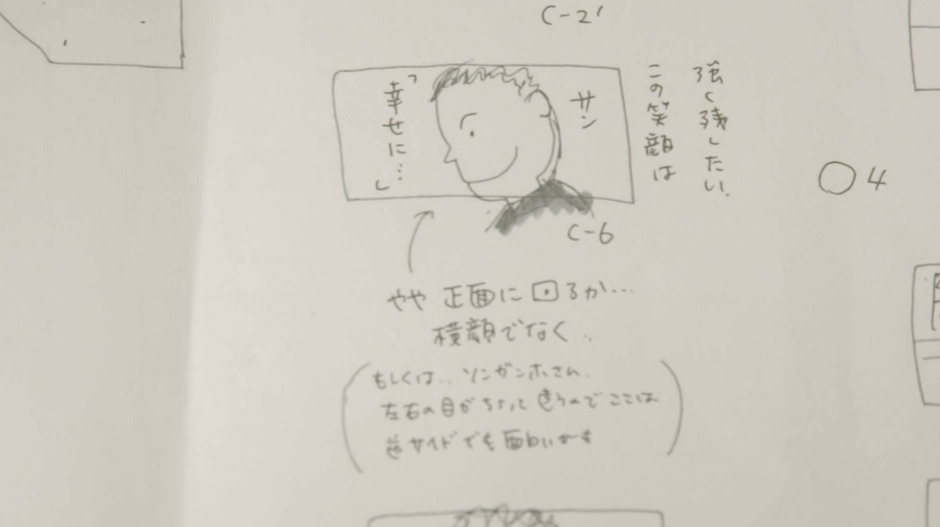 C-2'
強く残したい、
この笑顔は
サン
「幸せに…」
C-6
○4
やや 正面に 回るか…
横顔でなく..
(もしくは.. ソンガンホさん、
左右の目がちょっと違うのでここは
サイドでも面白いかも)